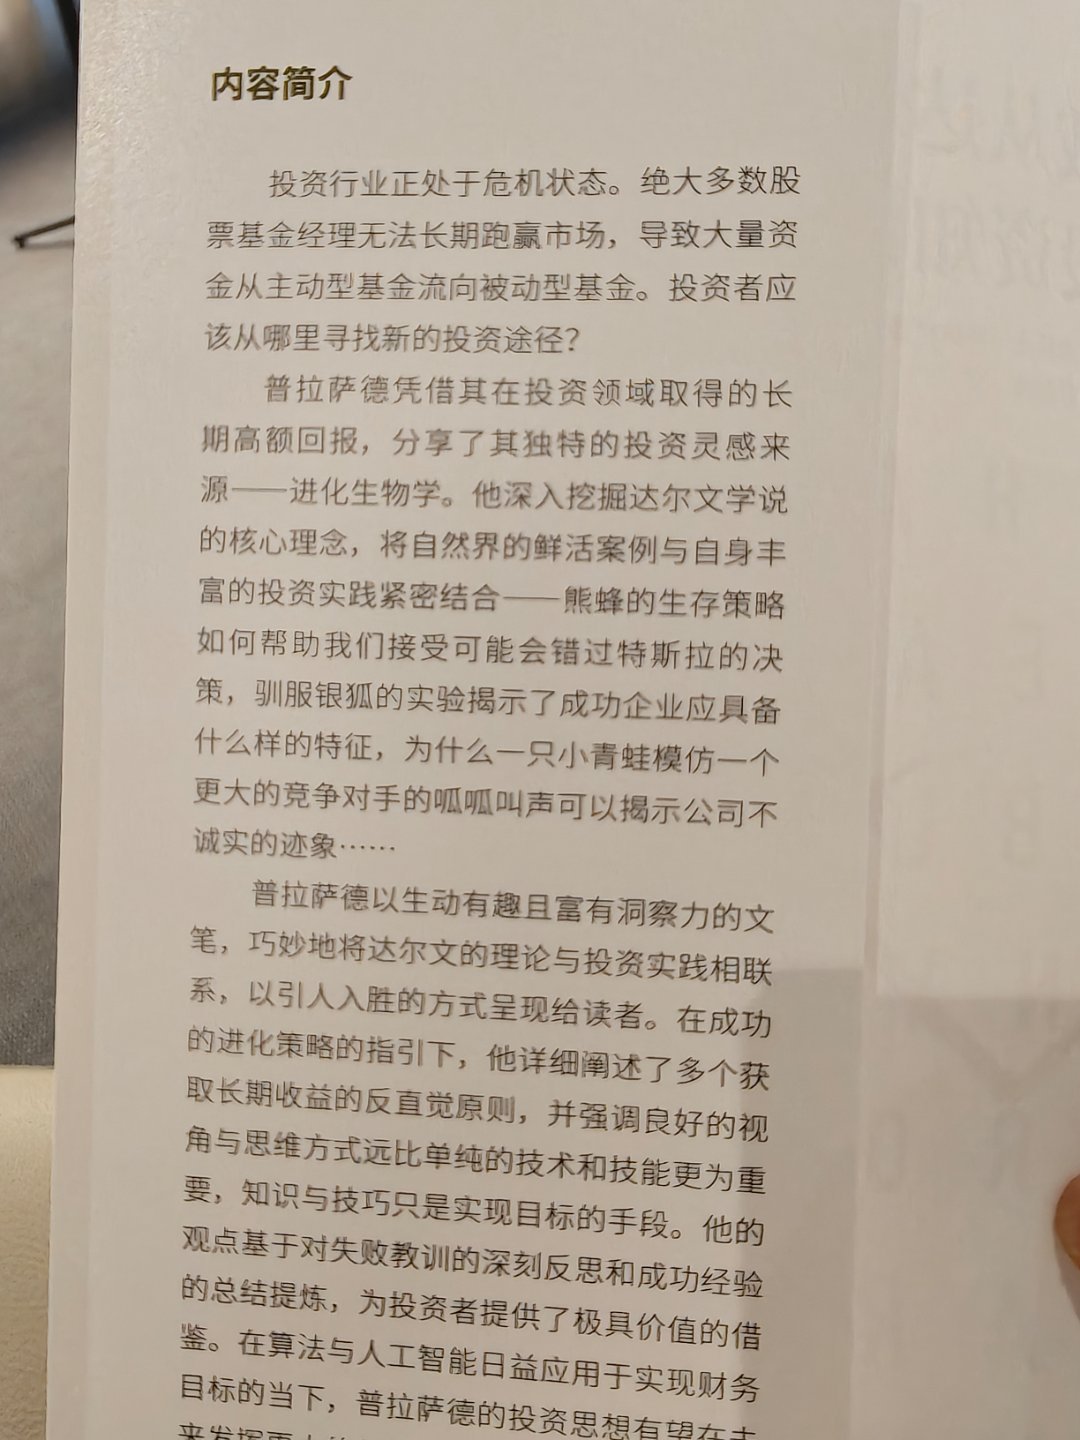 内容简介
投资行业正处于危机状态。绝大多数股
票基金经理无法长期跑赢市场，导致大量资
金从主动型基金流向被动型基金。投资者应
该从哪里寻找新的投资途径？
普拉萨德凭借其在投资领域取得的长
期高额回报，分享了其独特的投资灵感来
源——进化生物学。他深入挖掘达尔文学说
的核心理念，将自然界的鲜活案例与自身丰
富的投资实践紧密结合——熊蜂的生存策略
如何帮助我们接受可能会错过特斯拉的决
策，驯服银狐的实验揭示了成功企业应具备
什么样的特征，为什么一只小青蛙模仿一个
更大的竞争对手的呱呱叫声可以揭示公司不
诚实的迹象……
普拉萨德以生动有趣且富有洞察力的文
笔，巧妙地将达尔文的理论与投资实践相联
系，以引人入胜的方式呈现给读者。在成功
的进化策略的指引下，他详细阐述了多个获
取长期收益的反直觉原则，并强调良好的视
角与思维方式远比单纯的技术和技能更为重
要，知识与技巧只是实现目标的手段。他的
观点基于对失败教训的深刻反思和成功经验
的总结提炼，为投资者提供了极具价值的借
鉴。在算法与人工智能日益应用于实现财务
目标的当下，普拉萨德的投资思想有望在未
来发挥更大的